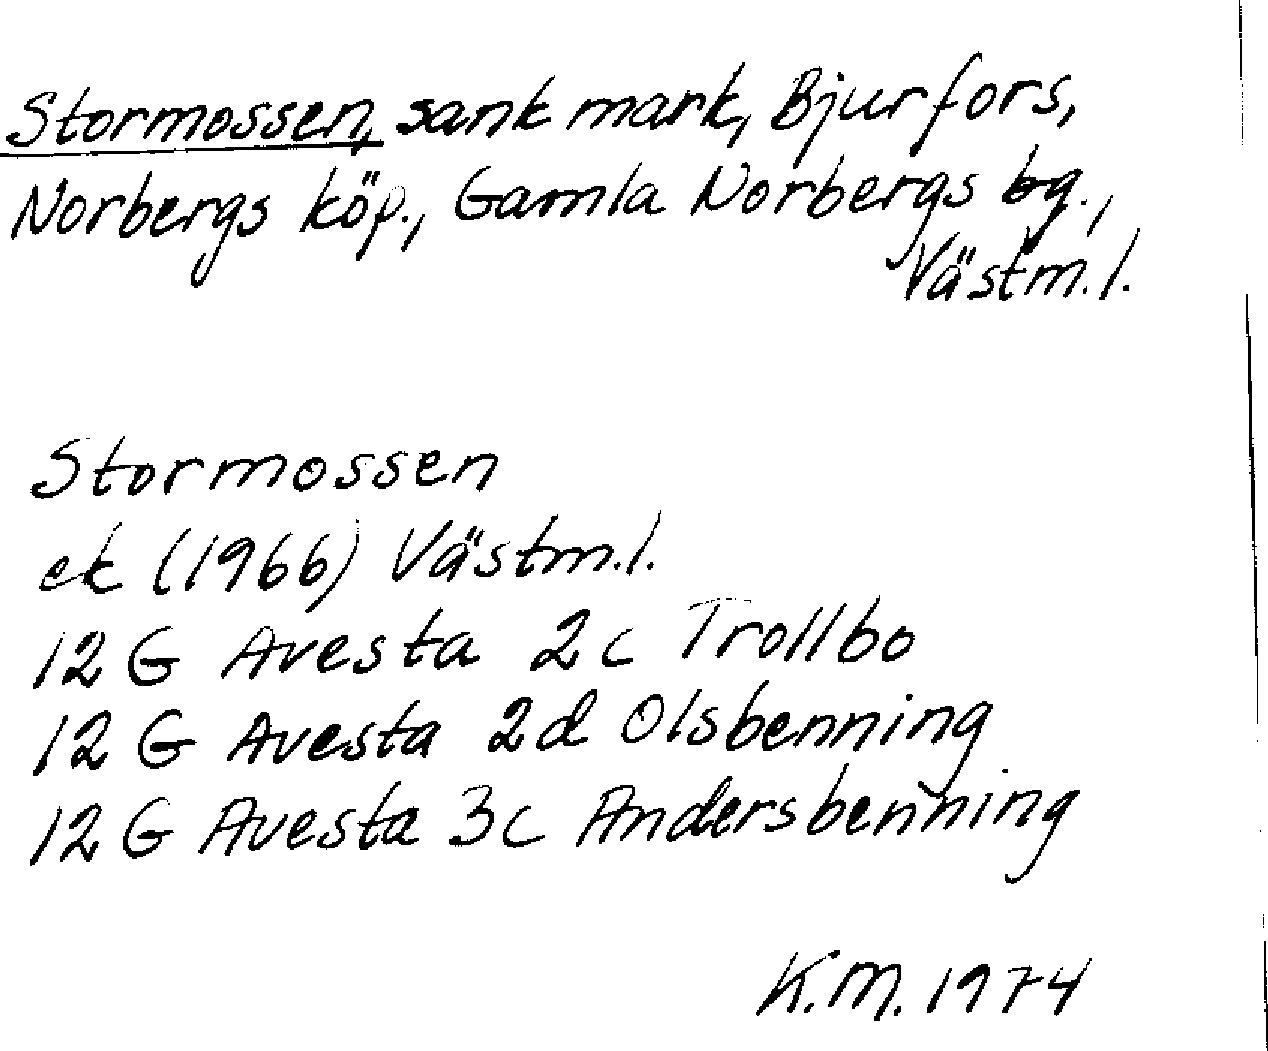 Stormossen, sank mark, Bjurfors,
Norbergs köp., Gamla Norbergs bg.,
Västm.l.
Stormossen
ek (1966) Västm.l.
12 G Avesta 2c Trollbo
12 G Avesta 2d Olsbenning
12 G Avesta 3c Andersbenning
K.M. 1974